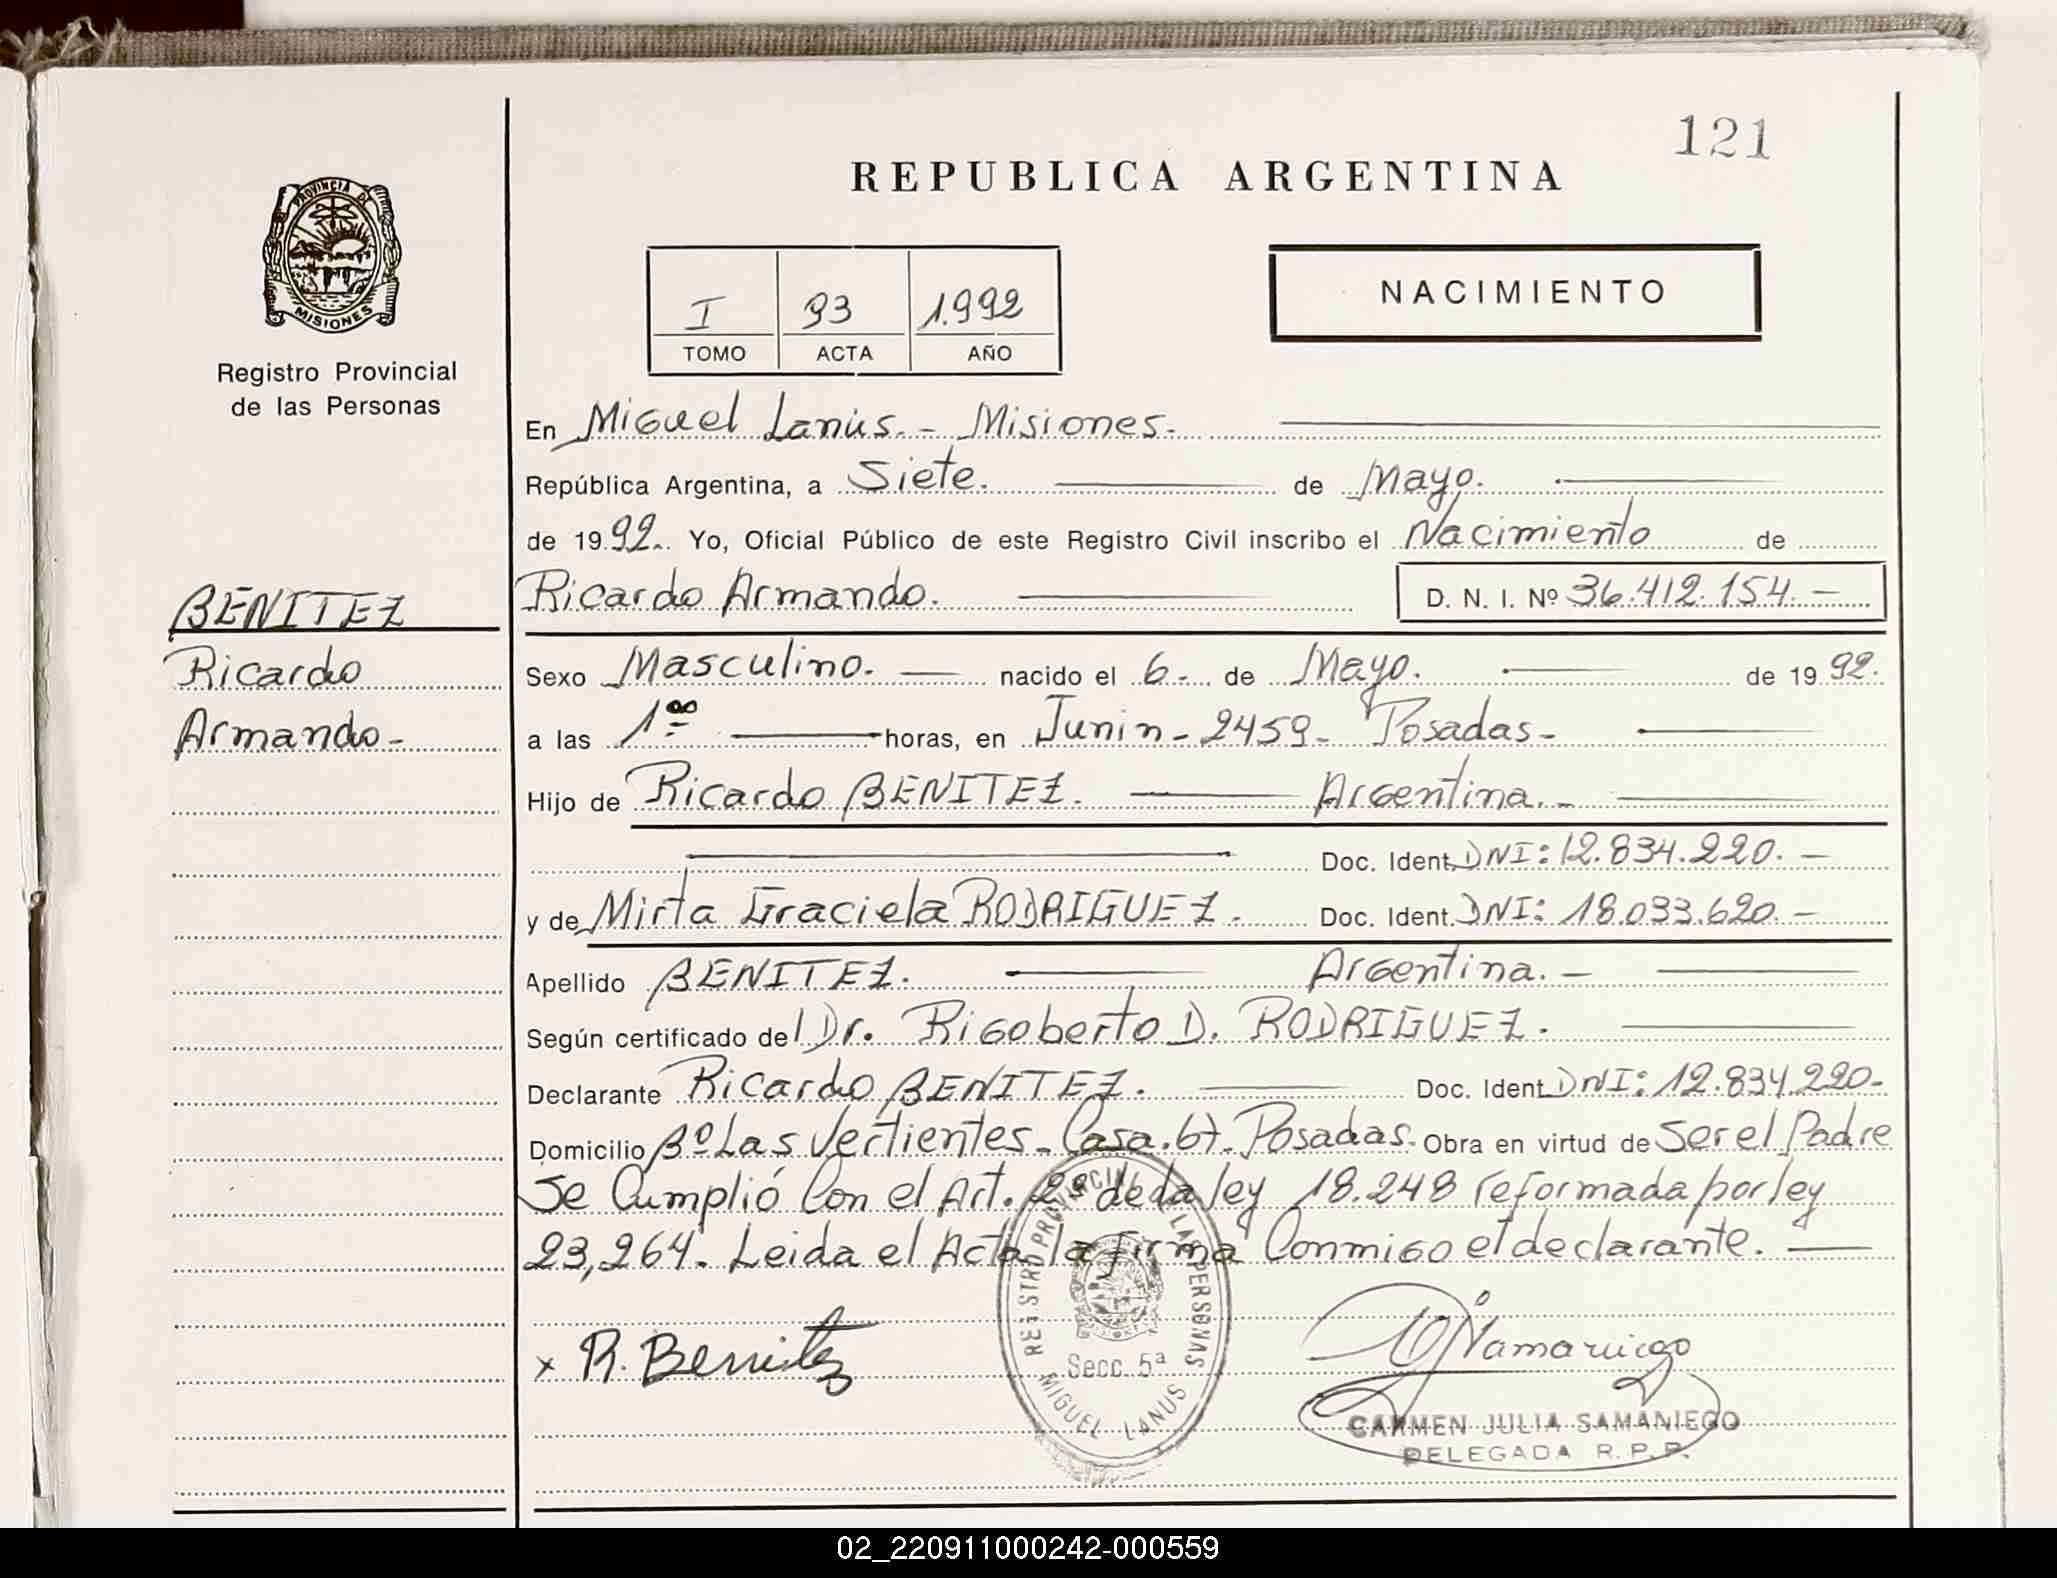 121
REPUBLICA ARGENTINA
PROVINCIA DE
MISIONES
Registro Provincial
de las Personas
I 93 1.992
TOMO ACTA AÑO
NACIMIENTO
En Miguel Lanús.- Misiones.
República Argentina, a Siete. de Mayo.
de 1992. Yo, Oficial Público de este Registro Civil inscribo el Nacimiento de
BENITEZ
Ricardo Armando. D. N. I. Nº 36.412.154.-
Ricardo
Sexo Masculino. nacido el 6. de Mayo. de 1992.
Armando-
a las 1ºº horas, en Junin - 2459- Posadas-
Hijo de Ricardo BENITEZ. Argentina.-
Doc. Ident. DNI: 12.834.220.-
y de Mirta Graciela RODRIGUEZ. Doc. Ident. DNI: 18.033.620.-
Apellido BENITEZ. Argentina.-
Según certificado del Dr. Rigoberto D. RODRIGUEZ.
Declarante Ricardo BENITEZ. Doc. Ident. DNI: 12.834.220-
Domicilio Bº Las Vertientes- Casa. 67- Posadas. Obra en virtud de Ser el Padre
Se Cumplió Con el Art. 2º de la ley 18.248 reformada por ley
23,264. Leida el Acta la firma Conmigo el declarante.
x R. Benitez
REGISTRO PROVINCIAL DE LAS PERSONAS
Secc. 5ª
MIGUEL LANUS
CARMEN JULIA SAMANIEGO
DELEGADA R.P.P.
02_220911000242-000559